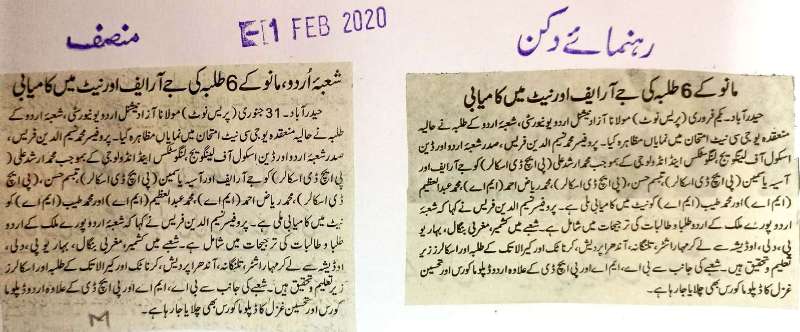 منصف
E-1 FEB 2020
رہنمائے دکن
شعبۂ اُردو، مانو کے 6 طلبہ کی جے آر ایف اور نیٹ میں کامیابی
حیدرآباد۔ 31 جنوری (پریس نوٹ) مولانا آزاد نیشنل اردو یونیورسٹی، شعبۂ اردو کے
طلبہ نے حالیہ منعقدہ یو جی سی نیٹ امتحان میں نمایاں مظاہرہ کیا۔ پروفیسر محمد نسیم الدین فریس،
صدر شعبۂ اردو اور ڈین اسکول آف لینگویج، لنگوسٹکس اینڈ انڈولوجی کے بموجب محمد ارشد علی (
پی ایچ ڈی اسکالر) کو جے آر ایف اور آسیہ یاسمین (پی ایچ ڈی اسکالر)، تبسم حسن، (پی ایچ
ڈی اسکالر)، محمد ریاض احمد (ایم اے)، محمد عبدالعظیم (ایم اے) اور محمد طیب (ایم اے) کو
نیٹ میں کامیابی ملی ہے۔ پروفیسر نسیم الدین فریس نے کہا کہ شعبۂ اردو پورے ملک کے اردو
طلبا و طالبات کی ترجیحات میں شامل ہے۔ شعبے میں کشمیر، مغربی بنگال، بہار، یو پی، دہلی،
اوڈیشہ سے لے کر مہاراشٹر، تلنگانہ، آندھرا پردیش، کرناٹک اور کیرالا تک کے طلبہ اور اسکالرز
زیر تعلیم و تحقیق ہیں۔ شعبے کی جانب سے بی اے، ایم اے اور پی ایچ ڈی کے علاوہ اردو ڈپلوما
کورس اور تحسین غزل کا ڈپلوما کورس بھی چلایا جا رہا ہے۔
M
مانو کے 6 طلبہ کی جے آر ایف اور نیٹ میں کامیابی
حیدرآباد۔ یکم فروری (پریس نوٹ) مولانا آزاد نیشنل اردو یونیورسٹی، شعبۂ اردو کے طلبہ نے حالیہ
منعقدہ یو جی سی نیٹ امتحان میں نمایاں مظاہرہ کیا۔ پروفیسر محمد نسیم الدین فریس، صدر شعبۂ اردو اور ڈین
اسکول آف لینگویج، لنگوسٹکس اینڈ انڈولوجی کے بموجب محمد ارشد علی (پی ایچ ڈی اسکالر) کو جے آر ایف اور
آسیہ یاسمین (پی ایچ ڈی اسکالر)، تبسم حسن، (پی ایچ ڈی اسکالر)، محمد ریاض احمد (ایم اے)، محمد عبدالعظیم
(ایم اے) اور محمد طیب (ایم اے) کو نیٹ میں کامیابی ملی ہے۔ پروفیسر نسیم الدین فریس نے کہا کہ شعبۂ
اردو پورے ملک کے اردو طلبا و طالبات کی ترجیحات میں شامل ہے۔ شعبے میں کشمیر، مغربی بنگال، بہار، یو
پی، دہلی، اوڈیشہ سے لے کر مہاراشٹر، تلنگانہ، آندھرا پردیش، کرناٹک اور کیرالا تک کے طلبہ اور اسکالرز زیر
تعلیم و تحقیق ہیں۔ شعبے کی جانب سے بی اے، ایم اے اور پی ایچ ڈی کے علاوہ اردو ڈپلوما کورس اور تحسین
غزل کا ڈپلوما کورس بھی چلایا جا رہا ہے۔